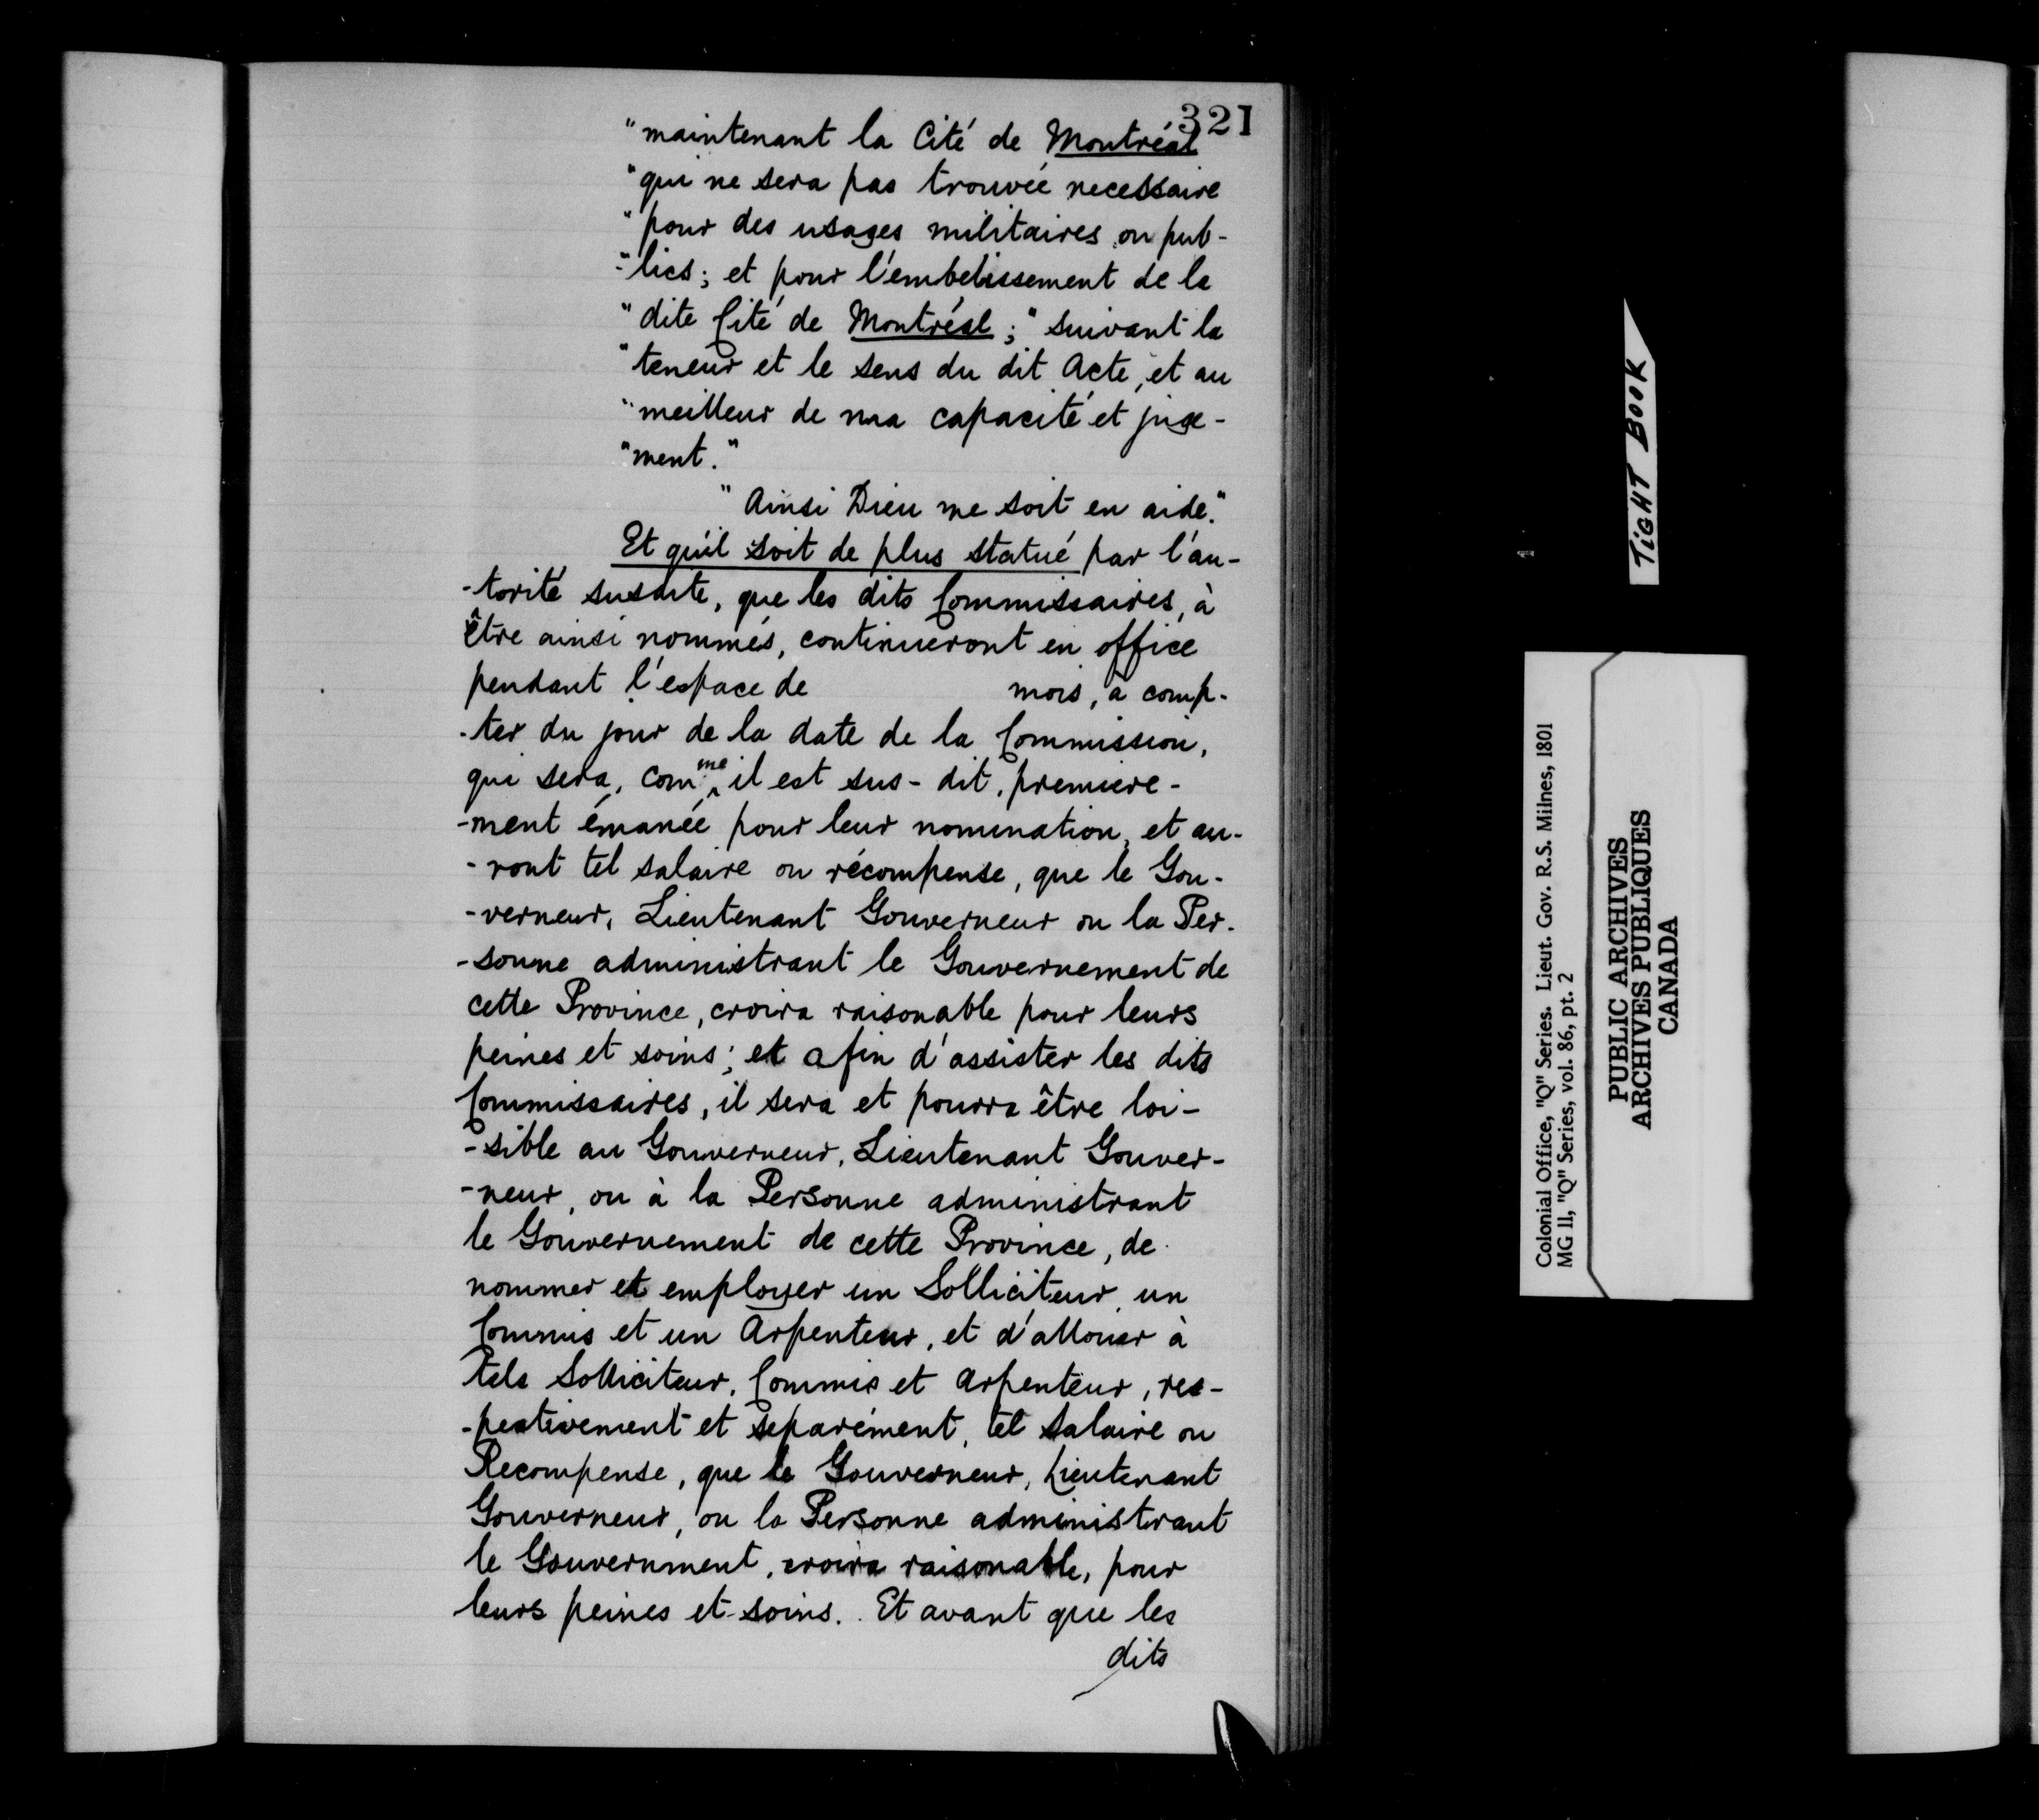 321
"maintenant la Cité de Montréal
"qui ne sera pas trouvée necessaire
"pour des usages militaires ou pub-
-"lics; et pour l'embelissement de la
"dite Cité de Montréal;" suivant la
"teneur et le sens du dit Acte, et au
"meilleur de ma capacité et juge-
"ment."
"Ainsi Dieu me soit en aide."
Et qu'il soit de plus statué par l'au-
-torité susdite, que les dits Commissaires, à
être ainsi nommés, continueront en office
pendant l'espace de mois, à comp-
-ter du jour de la date de la Commission,
qui sera, comme il est sus-dit, premiere-
-ment émanée pour leur nomination, et au-
-ront tel salaire ou récompense, que le Gou-
-verneur, Lieutenant Gouverneur ou la Per-
-sonne administrant le Gouvernement de
cette Province, croira raisonable pour leurs
peines et soins; et afin d'assister les dits
Commissaires, il sera et pourra être loi-
-sible au Gouverneur, Lieutenant Gouver-
-neur, ou à la Personne administrant
le Gouvernement de cette Province, de
nommer et employer un Solliciteur, un
Commis et un Arpenteur, et d'allouer à
tels Solliciteur, Commis et Arpenteur, res-
-pectivement et séparément, tel salaire ou
Recompense, que le Gouverneur, Lieutenant
Gouverneur, ou la Personne administrant
le Gouvernment, croira raisonable, pour
leurs peines et soins. Et avant que les
dits
TIGHT BOOK
1
Colonial Office, "Q" Series. Lieut. Gov. R.S. Milnes, 1801
MG 11, "Q" Series, vol. 86, pt. 2
PUBLIC ARCHIVES
ARCHIVES PUBLIQUES
CANADA